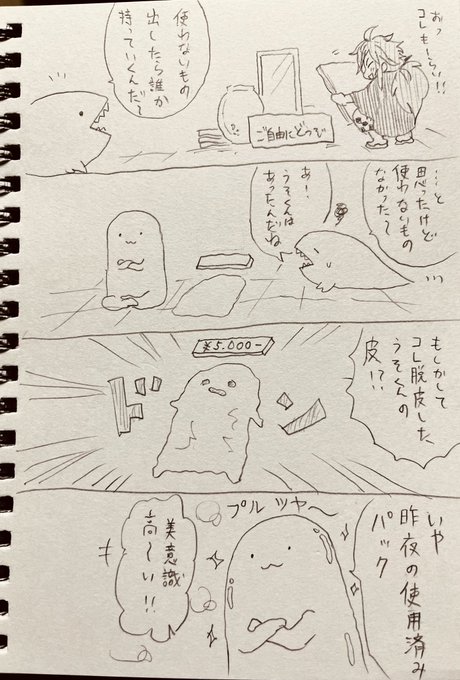 おっ
コレもーらい!!
使わないもの
出したら誰か
持っていくんだ?
ご自由にどうぞ
…と
思ったけど
使わないもの
なかった〜
あー!
うそくんは
あったんだね
もしかして
コレ脱皮した
うそくんの
皮!?!
¥5.000-
ドン
いや
昨夜の使用済み
パック
プルツヤ〜
美意識
高〜い!!